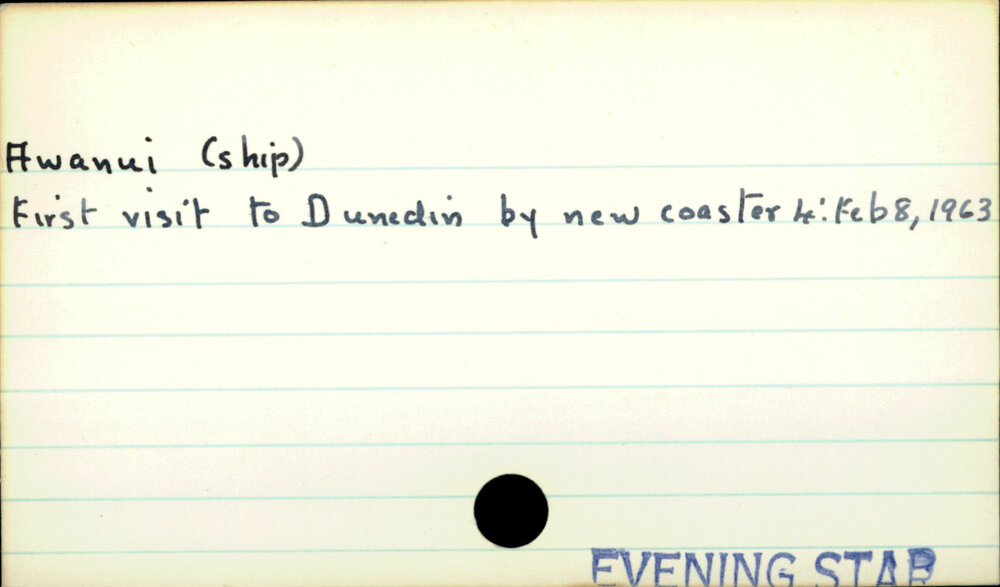 Awanui (ship)
First visit to Dunedin by new coaster 4: Feb 8, 1963
EVENING STAR